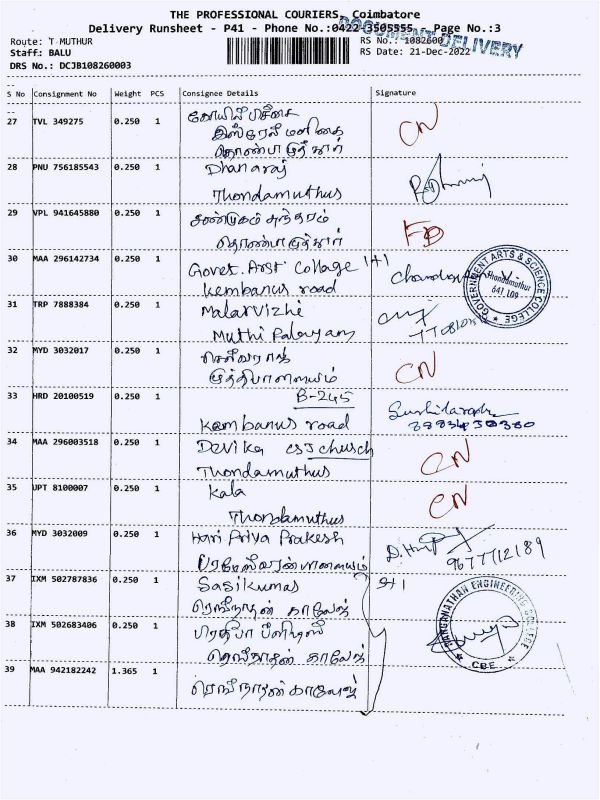 THE PROFESSIONAL COURIERS, Coimbatore
Delivery Runsheet - P41 - Phone No.:0422-3505555 - Page No.:3
DOCUMENT DELIVERY
Route: T MUTHUR
RS No.: 1082600
Staff: BALU
RS Date: 21-Dec-2022
DRS No.: DCJB108260003
S No Consignment No Weight PCS Consignee Details Signature
27 TVL 349275 0.250 1
CN
28 PNU 756185543 0.250 1 Dhanaraj
Thondamuthur
29 VPL 941645880 0.250 1 சண்முகம் சுந்தரம்
30 MAA 296142734 0.250 1 Govet. Arst Collage 1+1
Kembanur road
GOVERNMENT ARTS & SCIENCE COLLEGE
Thondamuthur
641 109
31 TRP 7888384 0.250 1 Malarvizhi
Muthi Palayam
32 MYD 3032017 0.250 1 செல்வராஜ்
முத்திபாளையம்
CN
33 HRD 20100519 0.250 1 B-245
Kembanur road
34 MAA 296003518 0.250 1 Devika CSI church
Thondamuthur
CN
35 UPT 8100007 0.250 1 Kala
Thondamuthur
CN
36 MYD 3032009 0.250 1 Hari Priya Prakesh
பரமேஸ்வரன்பாளையம்
9677712189
37 IXM 502787836 0.250 1 Sasikumar
ரெங்நாதன் காலேஜ்
38 IXM 502683406 0.250 1
ரெங்நாதன் காலேஜ்
RANGANATHAN ENGINEERING COLLEGE
CBE.
39 MAA 942182242 1.365 1 ரெங்நாதன் காலேஜ்